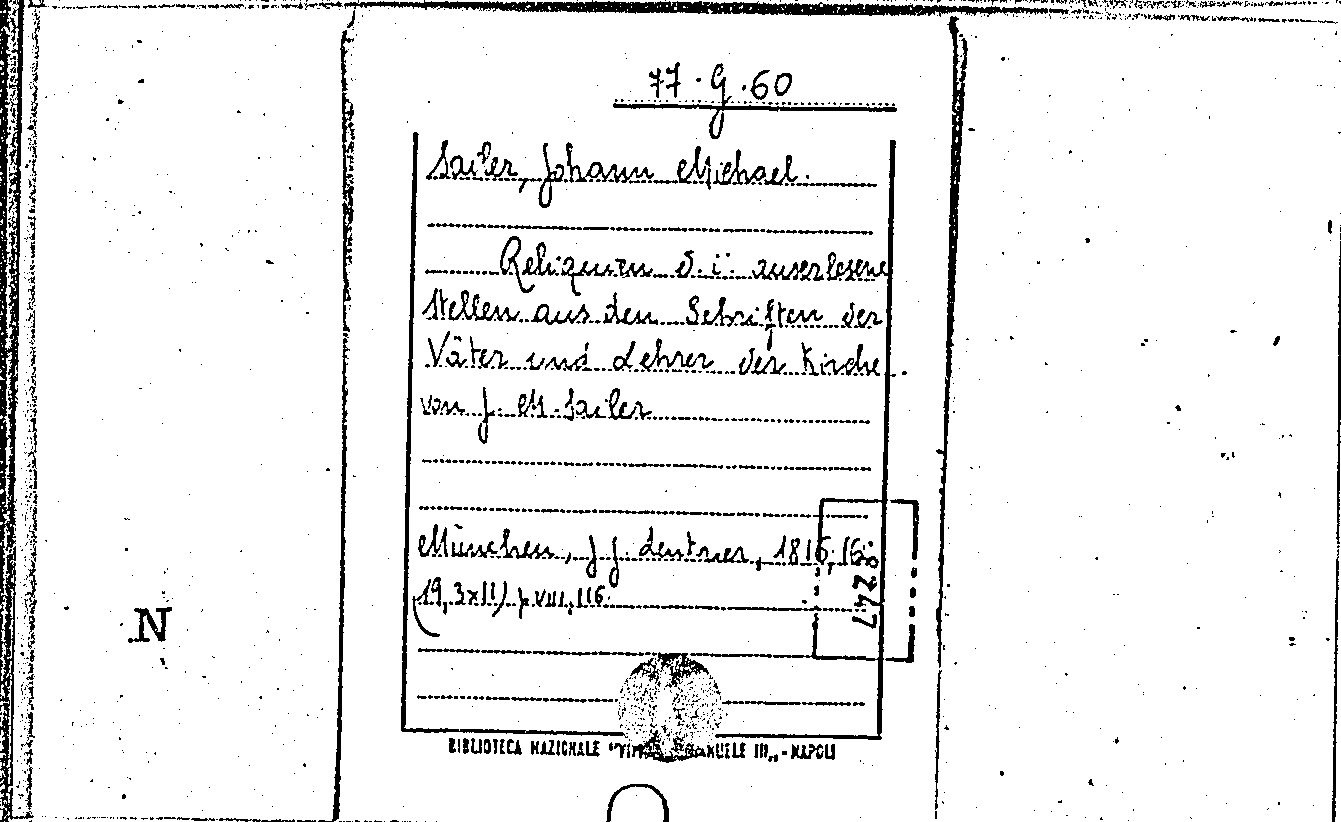 77.G.60
Sailer, Johann Michael.
Reliquien d. i. auserlesene
Stellen aus den Schriften der
Väter und Lehrer der Kirche.
von J. M. Sailer
München, J. J. Lentner, 1816, 16°
(19,3x11) p. VIII, 116.
8247
N
BIBLIOTECA NAZIONALE "VITT EMANUELE III„ - NAPOLI